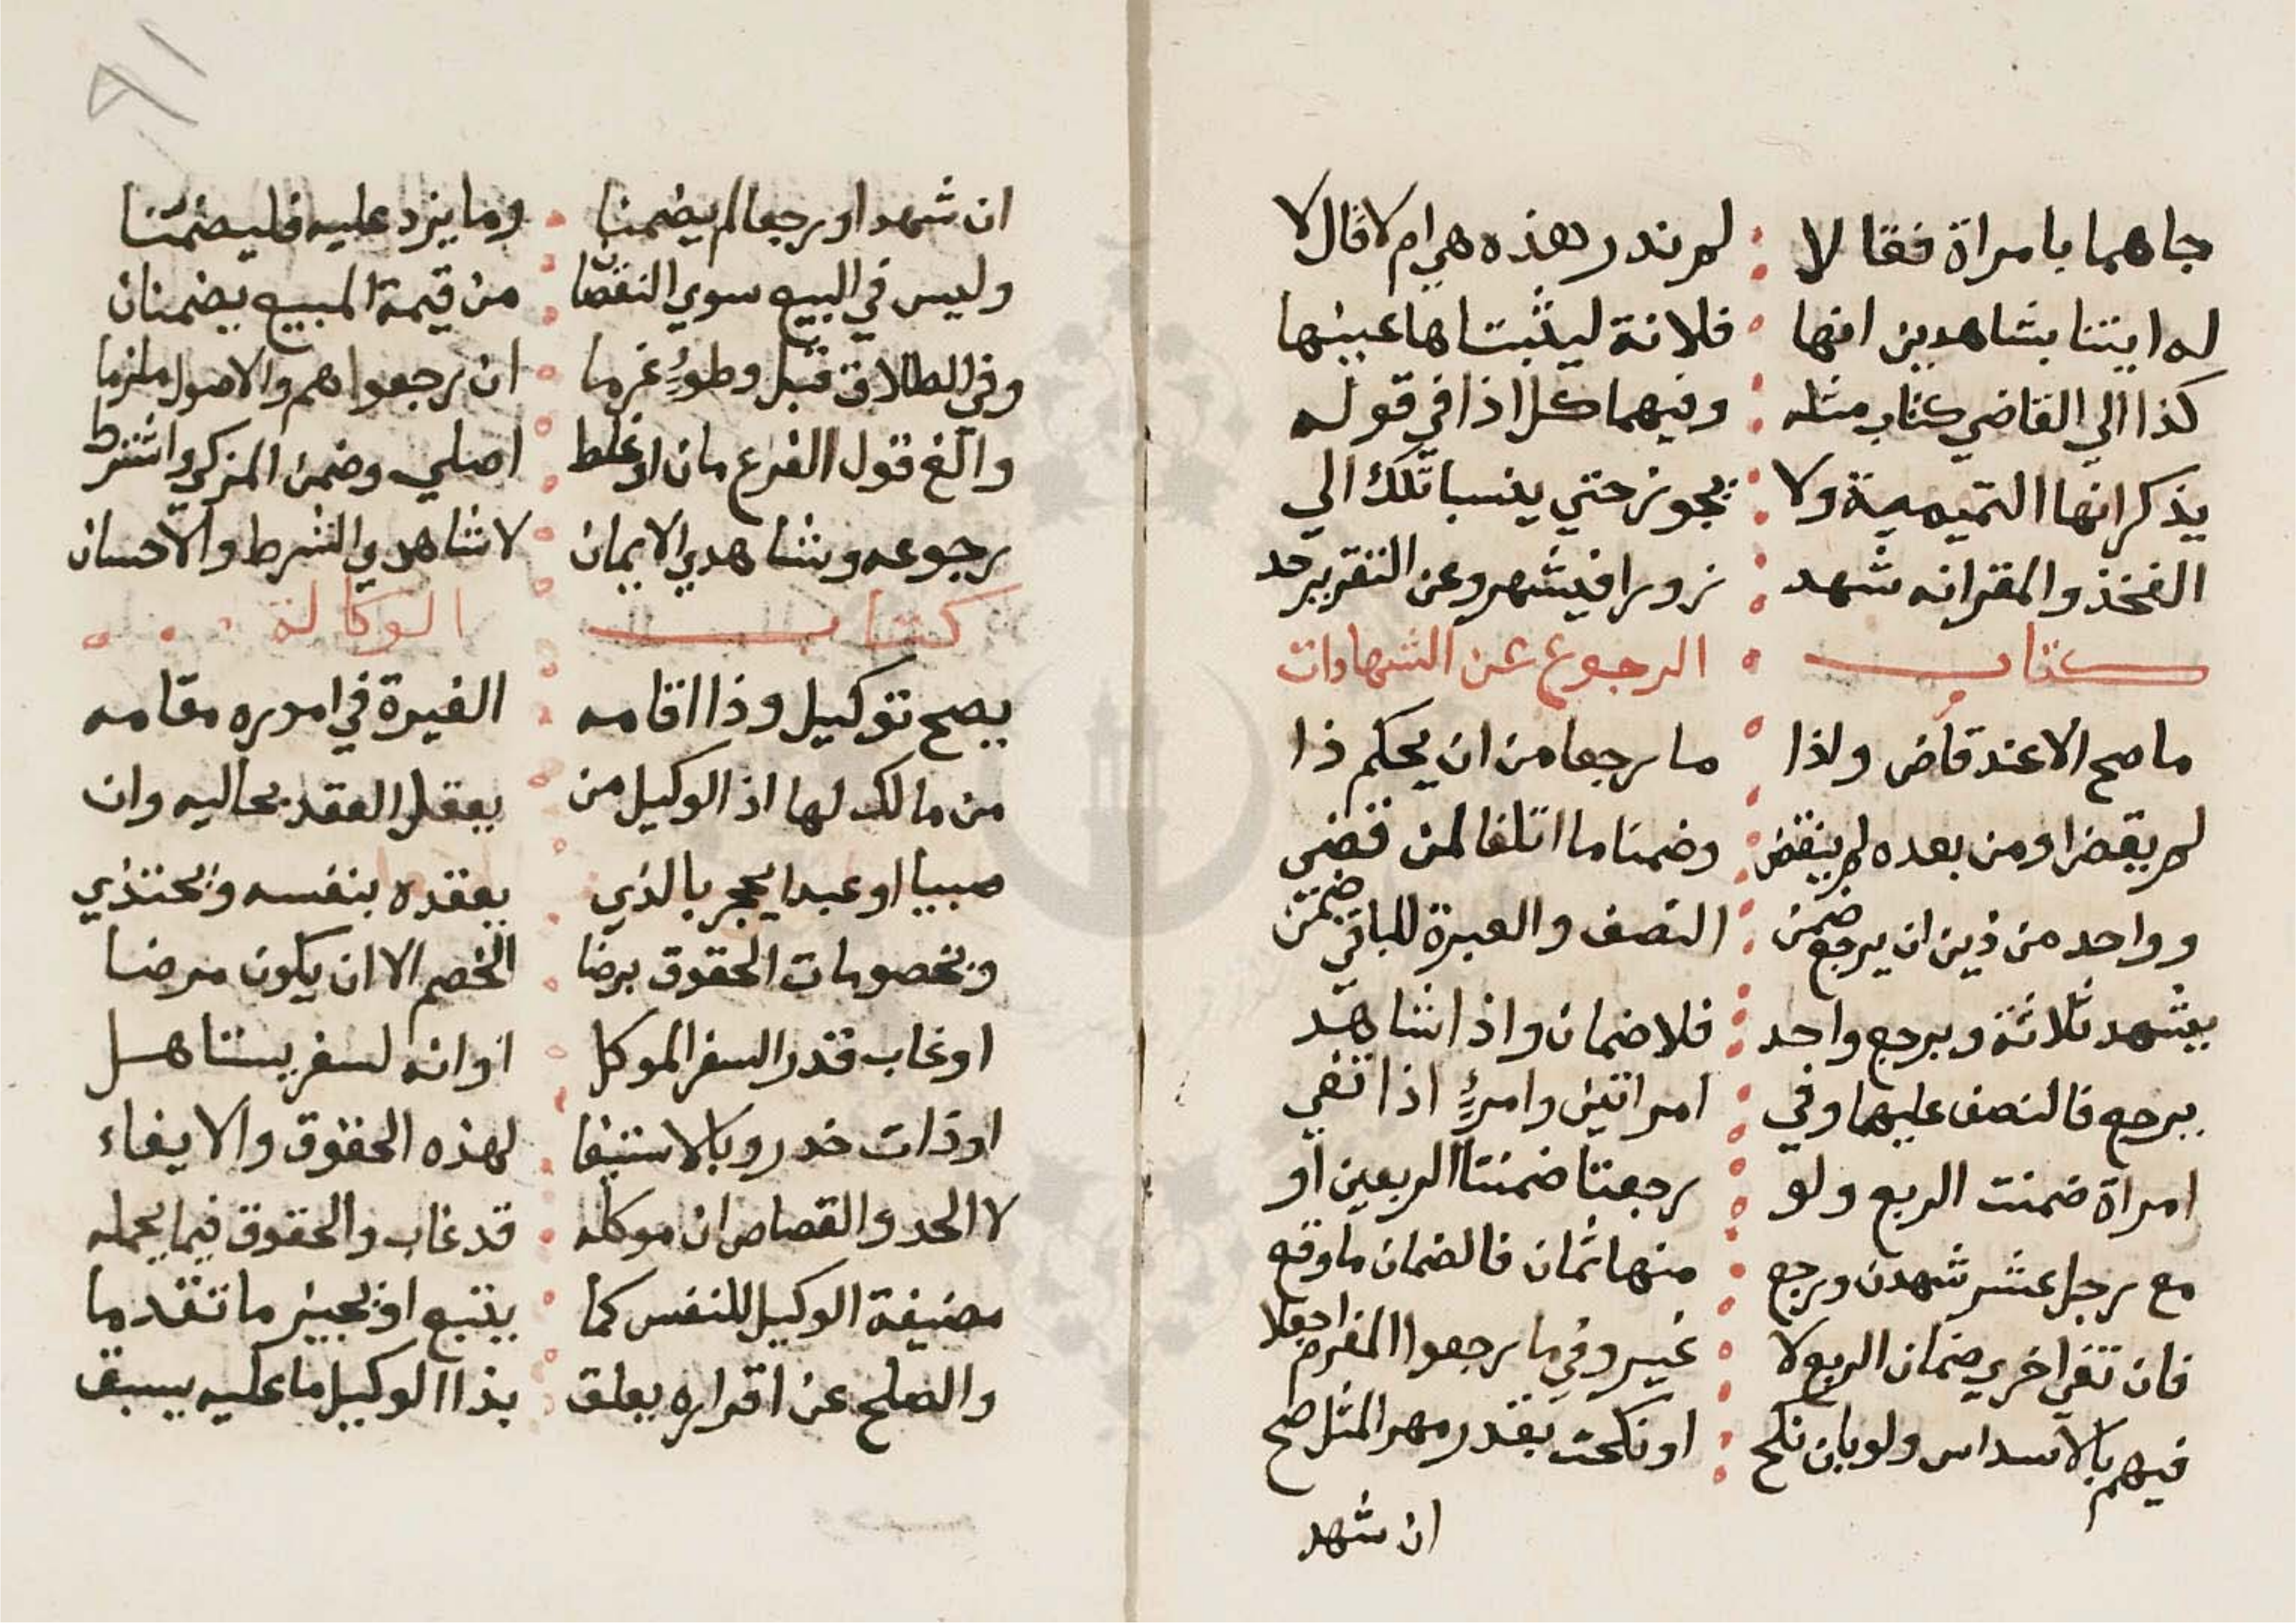 جاهما بامراة فقالا لم ندر هذه هي ام لا قال لا
له ايتنا بشاهدين انها فلانة ليثبتاها عينها
كذا الي القاضي كتاب مثله وفيهما كل اذا في قوله
يذكر انها التميمية ولا يجوز حتي ينسبا تلك الي
الفخذ والمقر انه شهد زورا فيشهر وعن التقرير حد
كتاب الرجوع عن الشهادات
ما صح الا عند قاض ولذا ما رجعا من ان يحكم ذا
لم يقض او من بعده لم ينقض وضمنا ما اتلفا لمن قضي
وواحد من ذين ان يرجع ضمن النصف والعبرة للباقي ضمن
يشهد ثلاثة ويرجع واحد فلا ضمان واذا شاهد
يرجع فالنصف عليهما وفي امراتين وامرئ اذا تفي
امراة ضمنت الربع ولو رجعتا ضمنتا الربعين او
مع رجل عشر شهدن ورجع منها ثمان فالضمان ما وقع
فان تفي اخري ضمان الربع لا غير وفي ما رجعوا المغرم اجعلا
فيهم بالاسداس ولو بان نكح او نكحت بقدر مهر المثل صح
ان شهد
ان شهدا ورجعا لم يضمنا وما يزد عليه فليضمنا
وليس في البيع سوي النقصان من قيمة المبيع يضمنان
وفي الطلاق قبل وطوء غرما ان رجعوا هم والاصول ملزما
والغ قول الفرع مان او غلط اصلي وضمن المزكي واشترط
رجوعه وشاهدي الايمان لا شاهدي الشرط والاحسان
كتاب الوكالة
يصح توكيل وذا اقامه الغيرة في اموره مقامه
من مالك لها اذ الوكيل من يعقل العقد بحاليه وان
صبيا او عبدا يحجر بالذي يعقده بنفسه ويحتذي
وبخصومات الحقوق برضا الخصم الا ان يكون مرضا
او غاب قدر السفر الموكل او انه لسفر يستاهل
او ذات خدر وبالاستيفا لهذه الحقوق والايفاء
لا الحد والقصاص ان موكله قد غاب والحقوق فيما يجمله
مضيفة الوكيل للنفس كما يتبع او يجيز ما تقدما
والصلح عن اقراره يعلق بذا الوكيل ما عليه يسبق